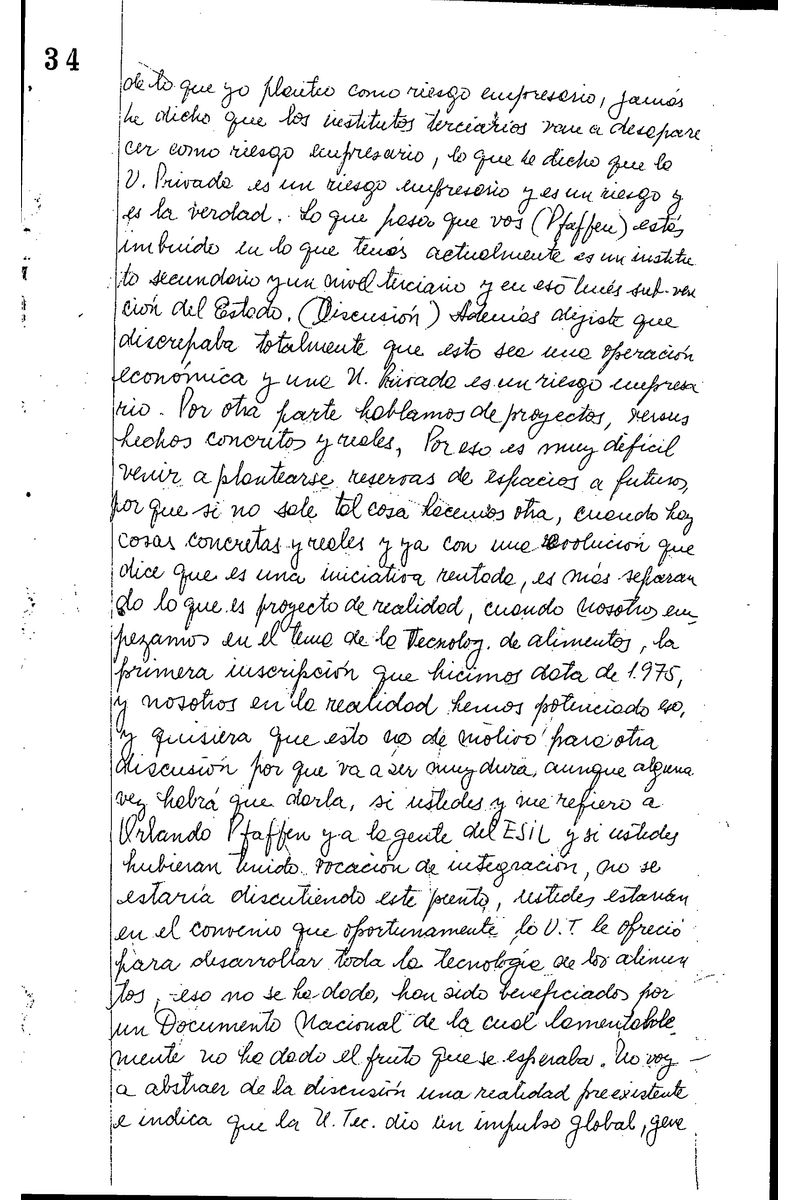 34
de lo que yo planteo como riesgo empresario, jamás
he dicho que los institutos terciarios van a desapare
cer como riesgo empresario, lo que he dicho que la
U. Privada es un riesgo empresario y es un riesgo y
es la verdad. Lo que pasa que vos (Pfaffen) estás
imbuído en lo que tenés actualmente es un institu
to secundario y un nivel terciario y en eso tenés sub-ven
ción del Estado. (Discusión) Además dijiste que
discrepaba totalmente que esto sea una operación
económica y una U. Privada es un riesgo empresa
rio. Por otra parte hablamos de proyectos, versus
hechos concretos y reales, Por eso es muy dificil
venir a plantearse reservas de espacios a futuros,
por que si no sale tal cosa hacemos otra, cuando hay
cosas concretas y reales y ya con una resolución que
dice que es una iniciativa rentada, es más separan
do lo que es proyecto de realidad, cuando nosotros em-
pezamos en el tema de la Tecnolog. de alimentos, la
primera inscripción que hicimos data de 1.975,
y nosotros en la realidad hemos potenciado eso,
y quisiera que esto no de motivo para otra
discusión por que va a ser muy dura, aunque alguna
vez habrá que darla, si ustedes y me refiero a
Orlando Pfaffen y a la gente del ESIL y si ustedes
hubieran tenido vocación de integración, no se
estaría discutiendo este punto, ustedes estarían
en el convenio que oportunamente la U.T. le ofreció
para desarrollar toda la tecnología de los alimen
tos, eso no se ha dado, han sido beneficiados por
un Documento Nacional de la cual lamentable
mente no ha dado el fruto que se esperaba. No voy
a abstraer de la discusión una realidad preexistente
e indica que la U. Tec. dio un impulso global, gene